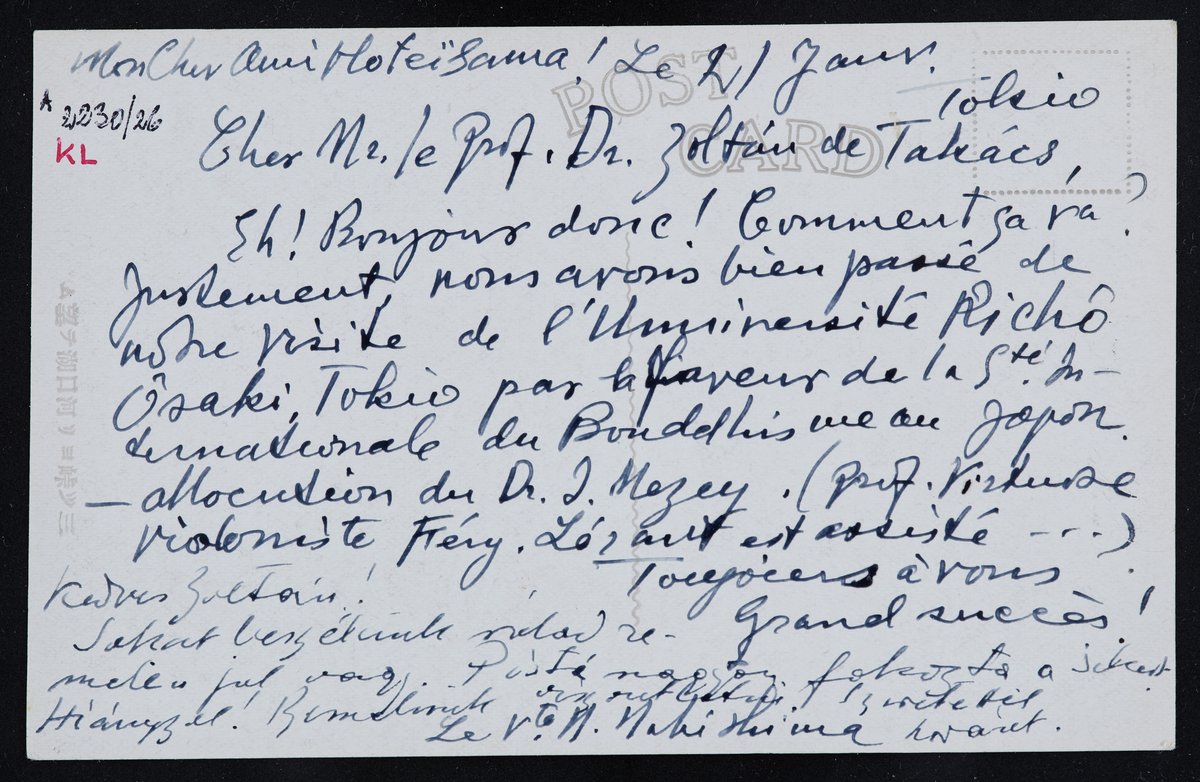 Mon Cher Ami Hoteï Sama! Le 21 Janv.
POST CARD
Tôkio
A 2230/26
KL
Cher Mr. le Prof. Dr. Zoltán de Takács,
Eh! Bonjour donc! Comment ça va?
Justement, nous avons bien passé de
nôtre visite de l'Université Richô
Ôsaki, Tokio par la faveur de la Sté. In-
ternationale du Bouddhisme au Japon.
— allocution du Dr. I. Mezey. (Prof. Virtuose
violoniste Féry. Lórant est assisté ---)
Toujours à vous
Grand succès!
Kedves Zoltán!
Sokat beszélünk rólad re-
mélem jól vagy. Pista nagyon fokozta a sikert.
Hiányzol! Szeretetről
Le Vte. N. Makishima Lóránt.